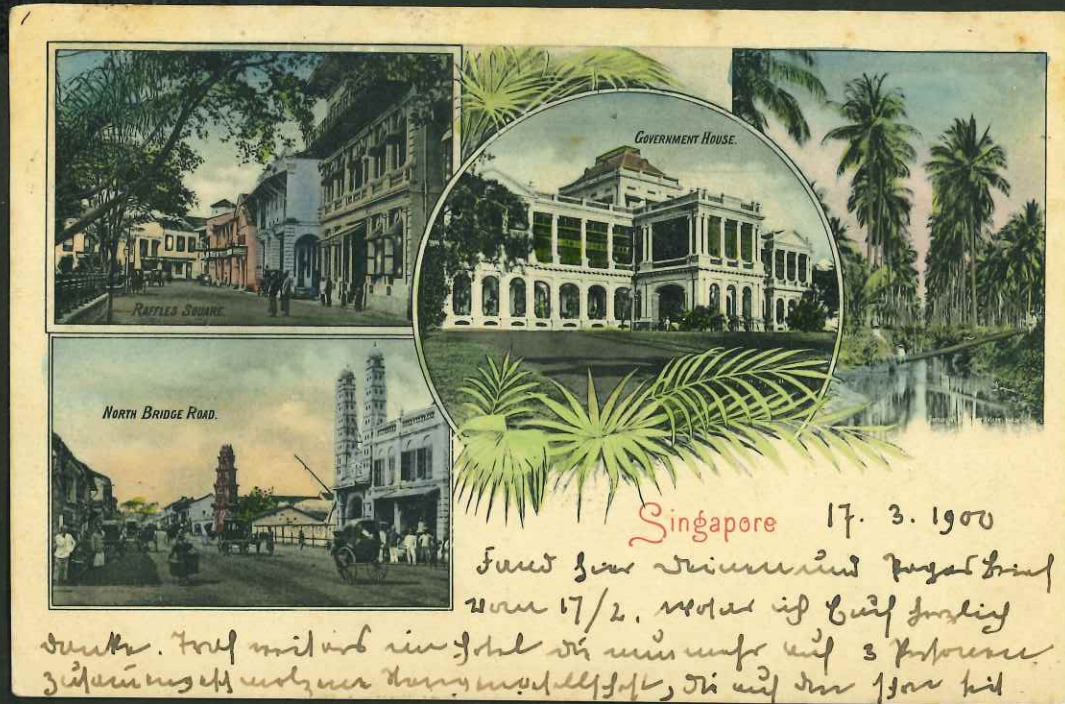 RAFFLES SQUARE.
GOVERNMENT HOUSE.
NORTH BRIDGE ROAD.
Singapore 17. 3. 1900
Fand hier Deinen und Papas Brief
vom 17/2. wofür ich Euch herzlich
danke. Traf weiters im Hotel die nunmehr auf 3 Personen
zusammengeschmolzene, die auf der